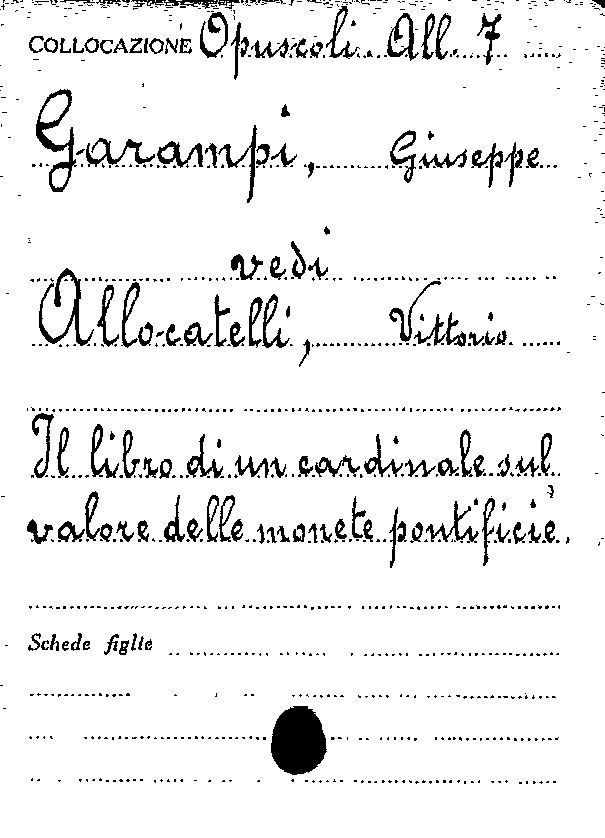 COLLOCAZIONE Opuscoli. All. 7
Garampi, Giuseppe
vedi
Allocatelli, Vittorio
Il libro di un cardinale sul
valore delle monete pontificie.
Schede figlie